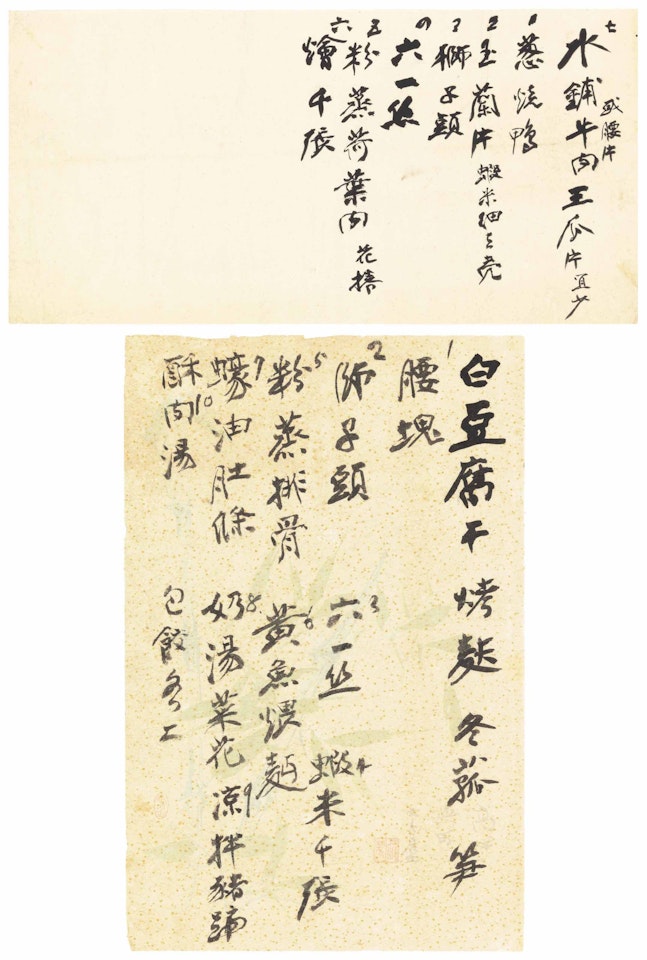 七 水鋪牛肉王瓜片宜少
或腰片
1 葱燒鴨
2 玉蘭片 蝦米
3 獅子頭
4 六一丝
五 粉蒸荷葉肉 花
六 燴千張
白豆腐干 烤麩 冬菰 笋
1 腰塊
2 师子頭 3 六一丝 4 蝦米千張
5 粉蒸排骨 6 黄魚煨麵
7 蠔油肚條 8 奶湯菜花 9 凉拌豬蹄
10 酥肉湯 包餃